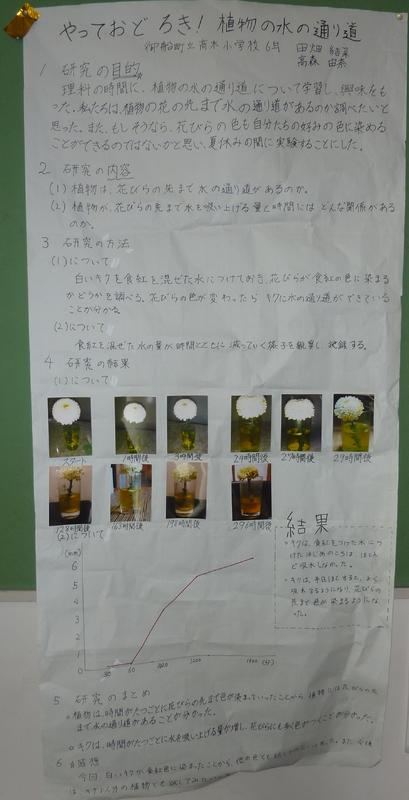 やっておどろき！植物の水の通り道
御船町立高木小学校 6年 田畑 結菜
高森 由奈
1 研究の目的
理科の時間に、植物の水の通り道について学習し、興味をも
った。私たちは、植物の花の先まで水の通り道があるのか調べたいと
思った。また、もしそうなら、花びらの色も自分たちの好みの色に染める
ことができるのではないかと思い、夏休みの間に実験することにした。
2 研究の内容
(1) 植物は、花びらの先まで水の通り道があるのか。
(2) 植物が、花びらの先まで水を吸い上げる量と時間にはどんな関係がある
のか。
3 研究の方法
(1)について
白いキクを食紅を混ぜた水につけておき、花びらが食紅の色に染まる
かどうかを調べる。花びらの色が変わったら キクに水の通り道ができている
ことが分かる。
(2)について
食紅を混ぜた水の量が時間とともに減っていく様子を観察し、記録する。
4 研究の結果
(1)について
スタート 1時間後 3時間後 24時間後 27時間後 29時間後
128時間後 165時間後 198時間後 296時間後
(2)について
(mm)
6
5
4
3
2
1
0
30 60 1200 1800 (分)
結果
・キクは、食紅をつけた水につ
けたはじめのころは、ほとん
ど吸水しなかった。
・キクは、半日ほどすると、よく
吸水するようになり、花びら
の先まで色が染まるようにな
った。
5 研究のまとめ
・植物は、時間がたつごとに花びらの先まで色が染まっていったことから、植物には花びらの先
まで水の通り道があることが分かった。
・キクは、時間がたつごとに水を吸い上げる量が増し、花びらにも多く色がつくことが分かった。
6 感想
今回、白いキクが食紅色に染まったことから、他の色でも